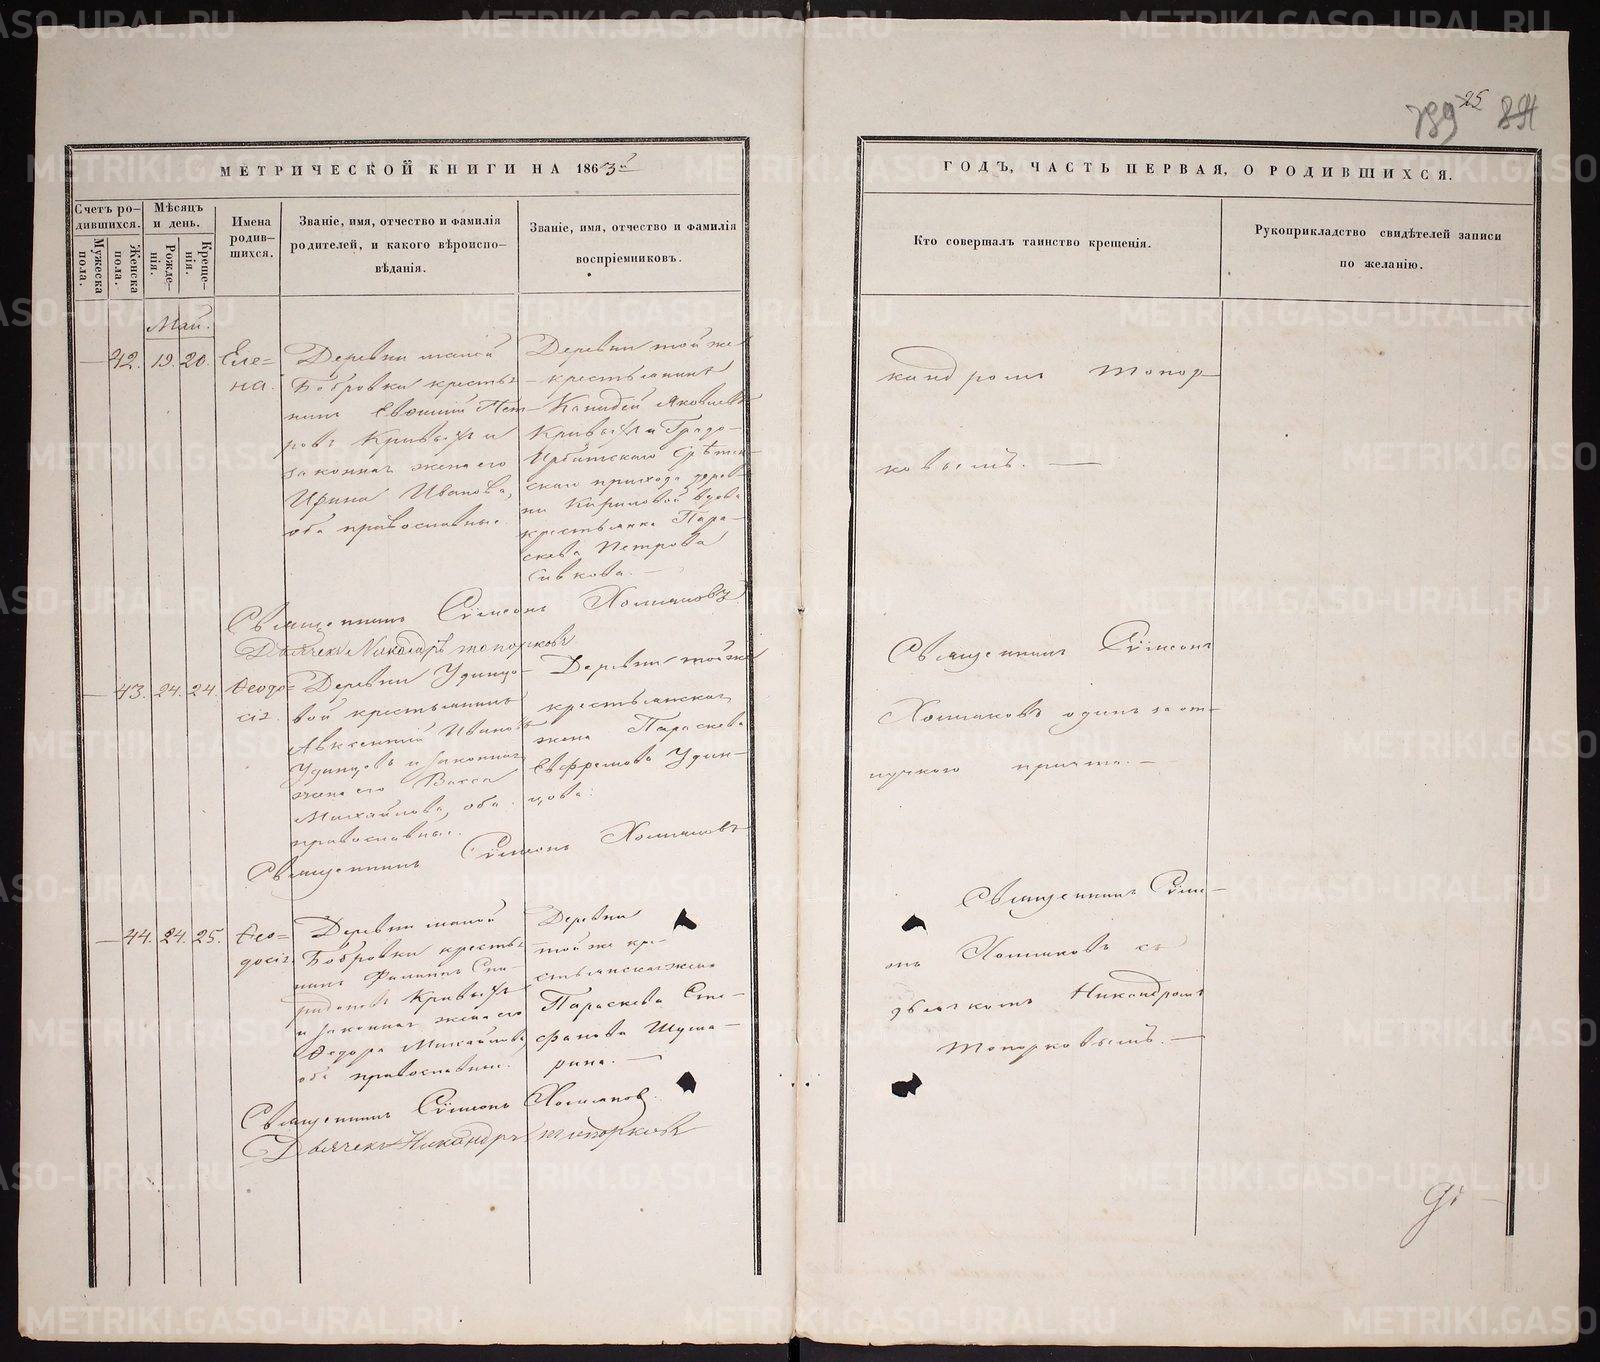 789 25 894
МЕТРИЧЕСКОЙ КНИГИ НА 1863й
ГОДЪ, ЧАСТЬ ПЕРВАЯ, О РОДИВШИХСЯ.
Счетъ ро-
дившихся.
Мужеска
пола.
Женска
пола.
Мѣсяцъ
и день.
Рожде-
нія.
Креще-
нія.
Имена
родив-
шихся.
Званіе, имя, отчество и фамилія
родителей, и какого вѣроиспо-
вѣданія.
Званіе, имя, отчество и фамилія
воспріемниковъ.
Кто совершалъ таинство крещенія.
Рукоприкладство свидѣтелей записи
по желанію.
Май.
— 42. 19. 20.
Еле=
на.
Деревни малой
Бобровки кресть-
нинъ Евѳимій Пет-
ровъ Кривыхъ и
законная жена его
Ирина Иванова,
оба православные.
Деревни той же
крестьянинъ
Яковлевъ
Кривыхъ и Градо-
Ирбитскаго Срѣтен-
скаго прихода дерев-
ни Кириловой вдова
крестьянка Пара-
скева Петрова
Сивкова. —
кандромъ Топор-
ковымъ. —
Священникъ Сѵмеонъ Холмановъ
Дьячекъ Никандръ Топорковъ
— 43. 24. 24.
Ѳеодо=
сія.
Деревни Удинцо-
вой крестьянинъ
Авксентій Ивановъ
Удинцовъ и законная
жена его Васса
Михайлова, оба
православные.
Деревни той же
крестьянская
жена Параскева
Евфремова Удин-
цова.
Священникъ Сѵмеонъ
Холмановъ одинъ за от-
лучкою причта. —
Священникъ Сѵмеонъ Холмановъ
— 44. 24. 25.
Ѳео=
досія.
Деревни малой
Бобровки кресть-
нинъ Филиппъ Спи-
ридоновъ Кривыхъ
и законная жена его
Ѳедора Михайлова
оба православные.
Деревни
той же кре-
стьянская жена
Параскева Сте-
фанова Шума-
рина. —
Священникъ Сѵме-
онъ Холмановъ съ
дьячкомъ Никандромъ
Топорковымъ. —
Священникъ Сѵмеонъ Холмановъ.
Дьячекъ Никандръ Топорковъ
METRIKI.GASO-URAL.RU